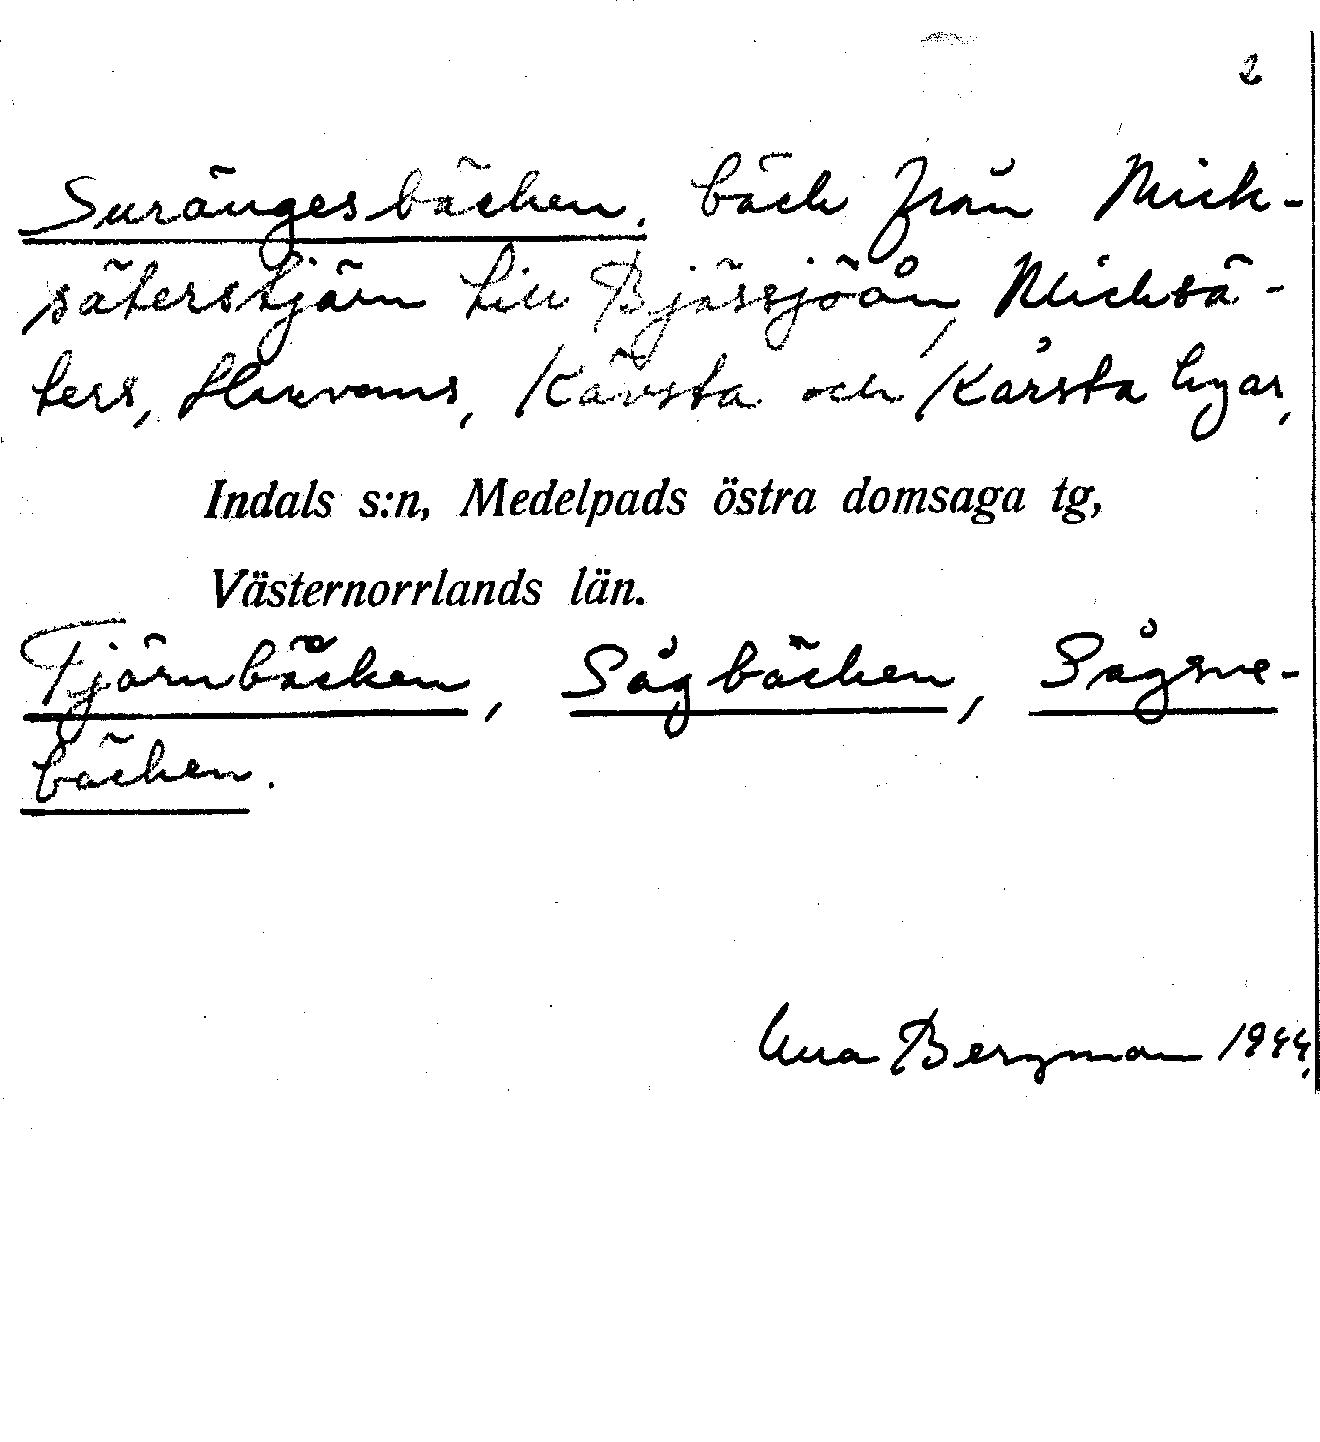 2
Surängesbäcken. bäck från Mick-
säterstjärn till Bjässjöån, Micksä-
ters, Kävsta och Kårsta byar,
Indals s:n, Medelpads östra domsaga tg,
Västernorrlands län.
Tjärnbäcken, Sågbäcken, Sågsve-
bäcken.
Bergman 1944,